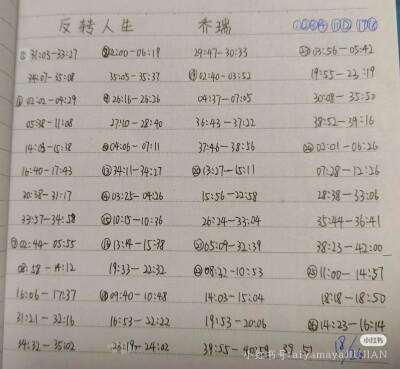 反转人生 乔瑞
①31:03-33:27 02:00-06:19 29:47-30:33 03:56-05:42
34:07-35:08 35:05-35:37 02:40-03:52 19:55-23:19
02:02-04:29 26:16-26:26 04:37-07:05 30:08-35:50
05:38-11:08 27:10-28:40 36:43-37:22 38:52-39:16
14:03-15:38 04:06-07:11 37:46-38:56 02:01-06:26
16:40-17:43 34:11-34:27 13:27-15:11 07:28-12:26
30:38-31:17 03:25-04:26 15:56-22:58 28:38-33:06
33:57-34:58 10:15-10:36 26:24-33:04 35:44-36:41
02:44-05:55 13:14-15:38 05:09-32:39 38:23-42:00
08:58-14:12 19:33-22:32 08:22-10:53 11:00-14:57
16:06-17:37 09:40-10:48 14:03-15:04 18:18-18:50
31:21-32:16 16:53-22:22 19:53-20:06 14:23-16:14
34:32-35:02 23:19-24:02 39:55-40:59 39:51 18/26
小红书
小红书号:aiyamayaJIJIAN